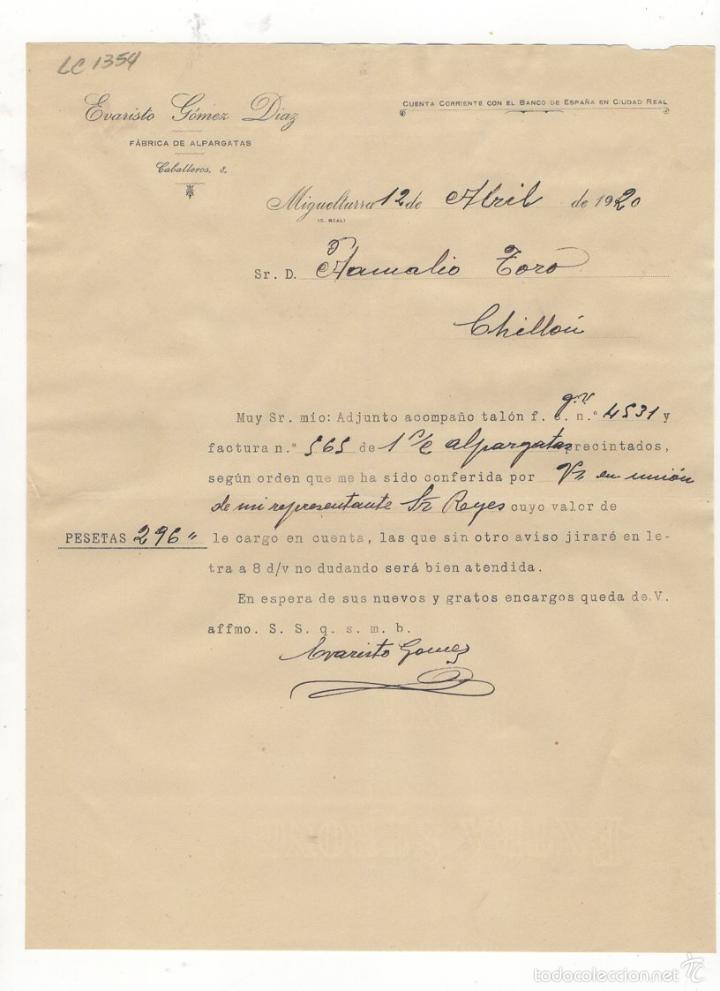 LC 1354
Evaristo Gómez Diaz
CUENTA CORRIENTE CON EL BANCO DE ESPAÑA EN CIUDAD REAL
FÁBRICA DE ALPARGATAS
Caballeros, 8.
Miguelturra 12 de Abril de 1920
(C. REAL)
Sr. D. Ramalio Toro
Chillón
Muy Sr. mío: Adjunto acompaño talón f. c. n.º 4531 y
factura n.º 565 de 1 s/c alpargatas recintados,
según orden que me ha sido conferida por V. en unión
de mi representante Sr Reyes cuyo valor de
PESETAS 296 " le cargo en cuenta, las que sin otro aviso jiraré en le-
tra a 8 d/v no dudando será bien atendida.
En espera de sus nuevos y gratos encargos queda de V.
affmo. S. S. q. s. m. b.
Evaristo Gomez
todocoleccion.net